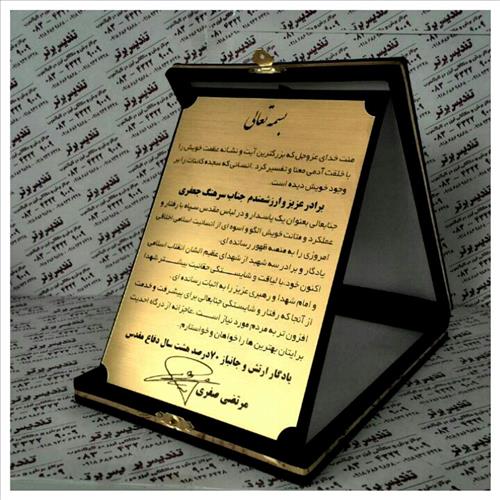 بسمه تعالی
منت خدای عزوجل که بزرگترین آیت و نشانه عظمت خویش را
با خلقت آدمی معنا و تفسیر کرد. انسانی که سجده کائنات را بر
وجود خویش دیده است.
برادر عزیز و ارزشمندم جناب سرهنگ جعفری
جنابعالی بعنوان یک پاسدار و در لباس مقدس سپاه با رفتار و
عملکرد و متانت خویش الگو و اسوه ای از انسانیت اسلامی اخلاقی
امروزی را به منصه ظهور رسانده ای.
یادگار و برادر سه شهید از شهدای عظیم الشان انقلاب اسلامی
اکنون خود، با لیاقت و شایستگی حقانیت بیشتر شهدا
و امام شهدا و رهبری عزیز را به اثبات رسانده ای.
از آنجا که رفتار و شایستگی جنابعالی برای پیشرفت و خدمت
افزون تر به مردم مورد نیاز است. عاجزانه از درگاه احدیت
برایتان بهترین ها را خواهان و خواستارم.
یادگار ارتش و جانباز ۷۰درصد هشت سال دفاع مقدس
مرتضی صفری
تندیس برتر